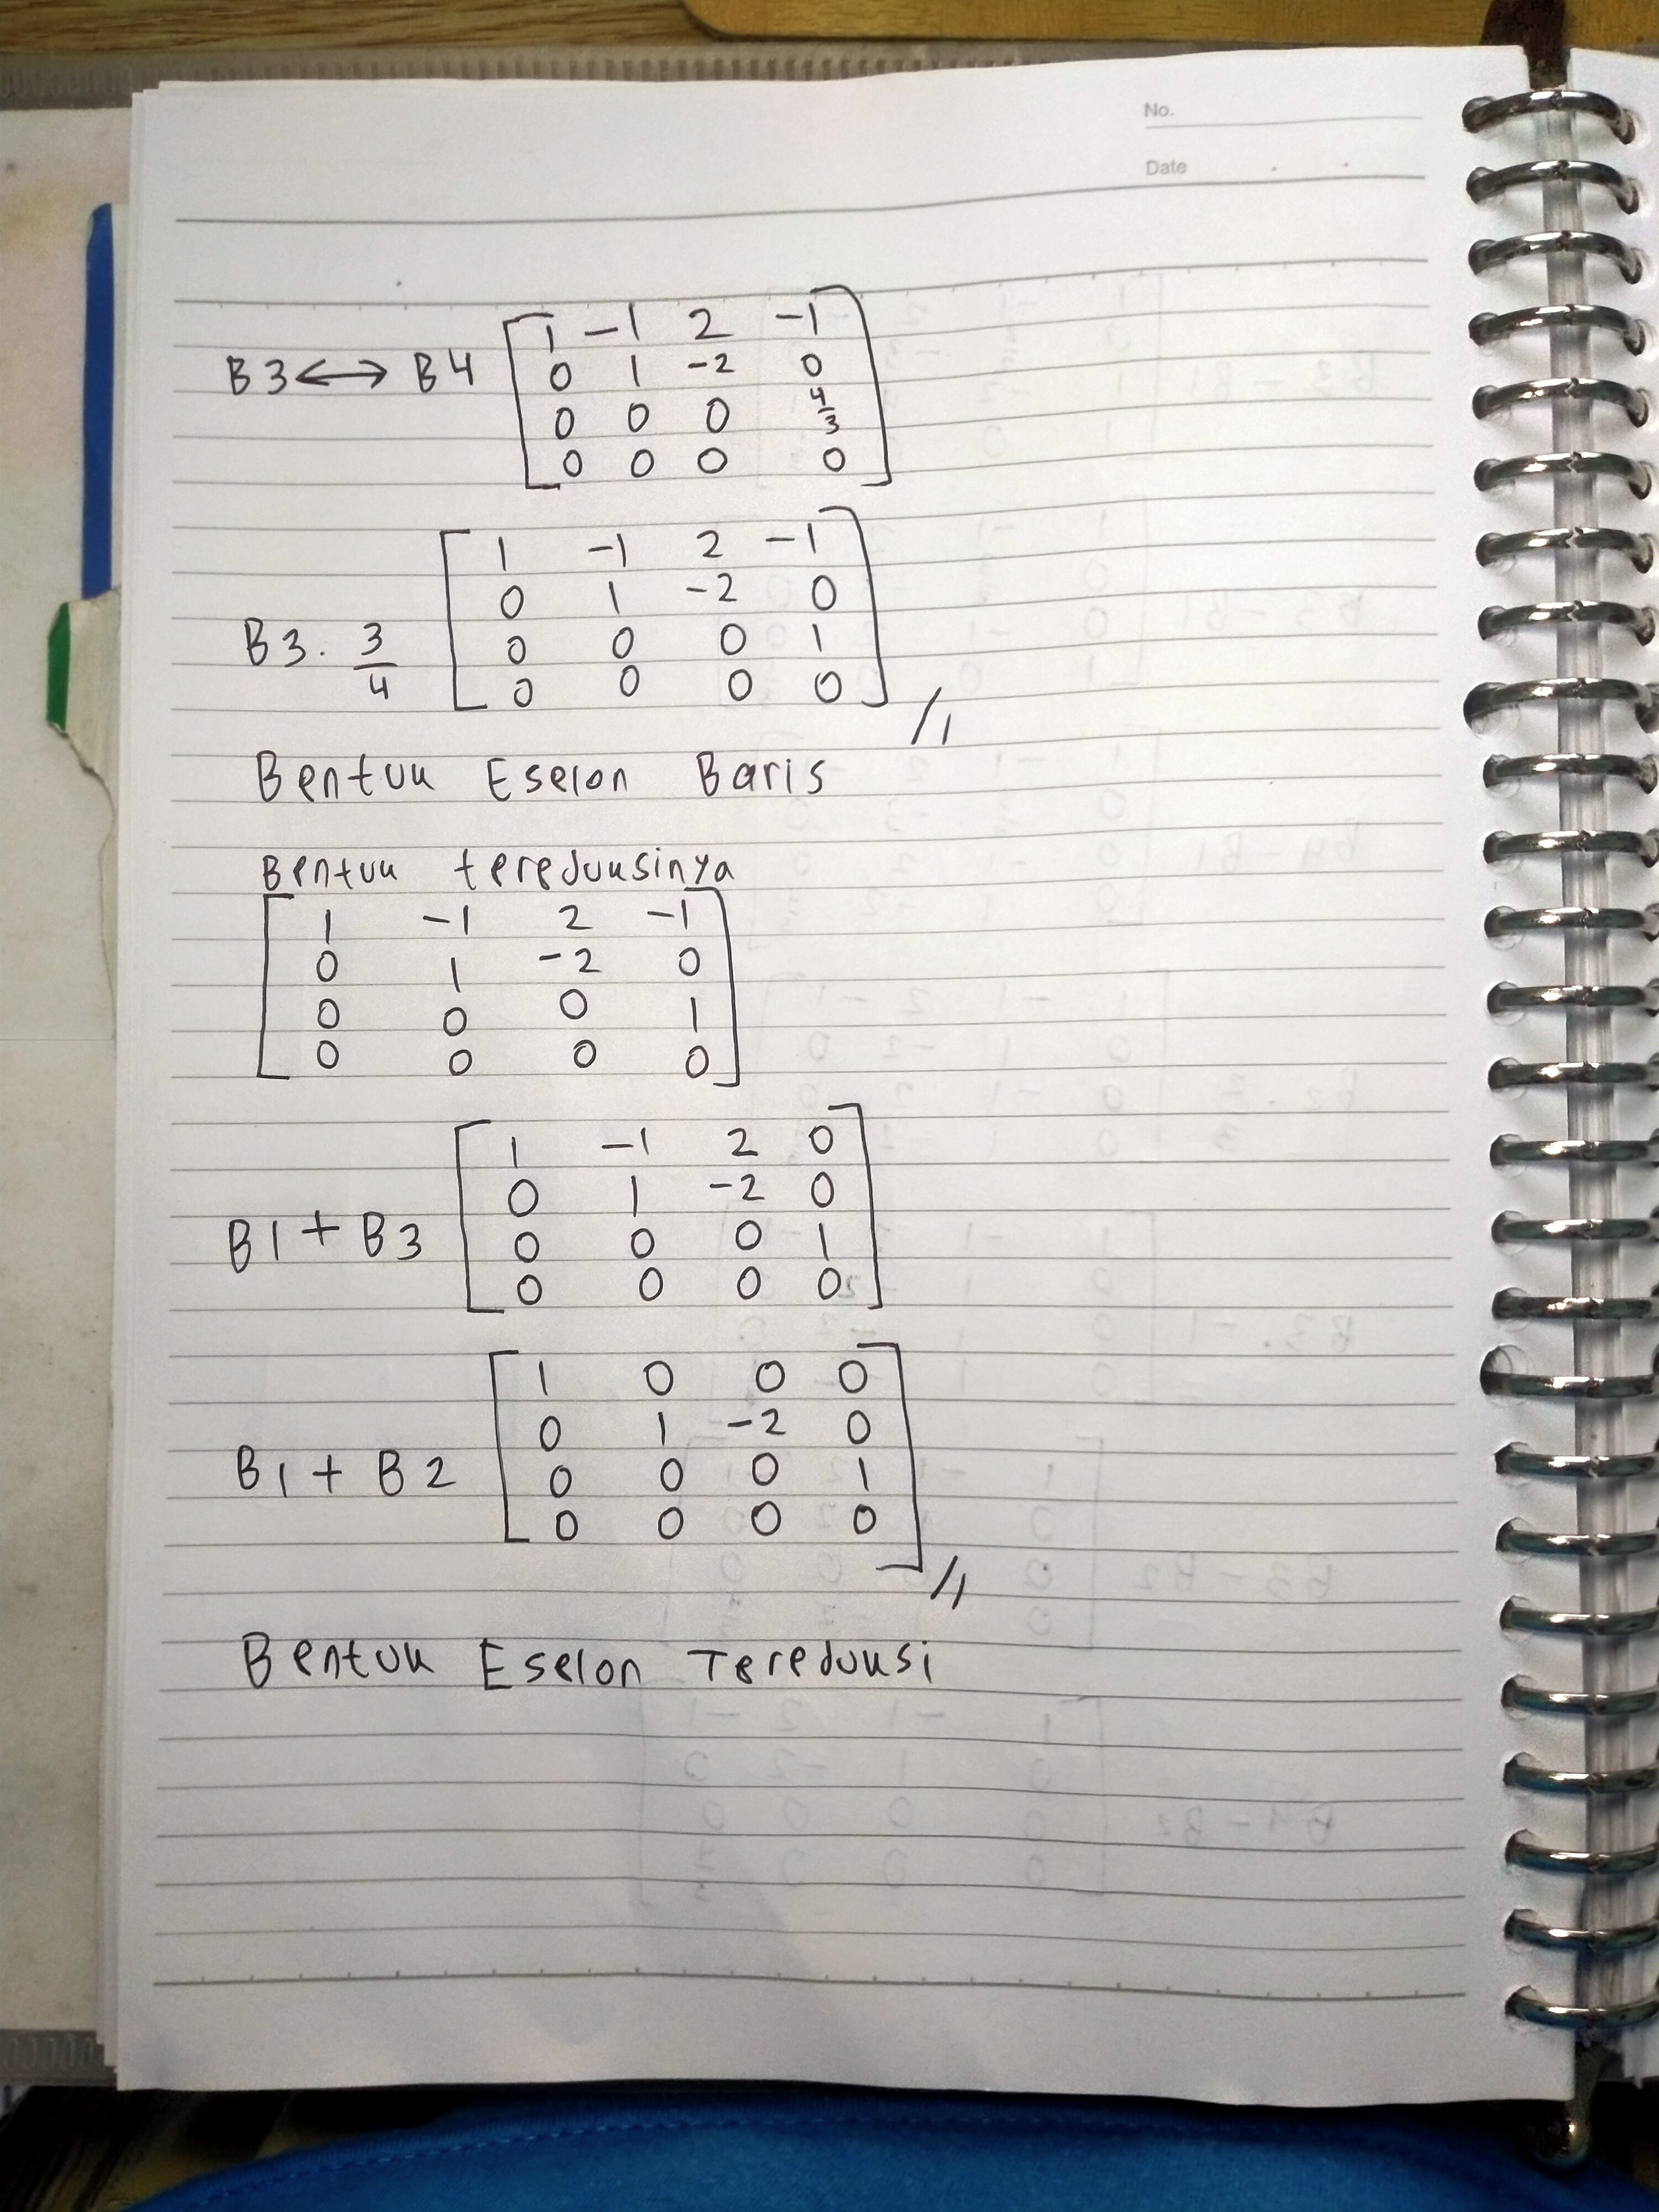 No.
Date
B3 ⟷ B4
1 -1 2 -1
0 1 -2 0
0 0 0 4/3
0 0 0 0
B3 . 3/4
1 -1 2 -1
0 1 -2 0
0 0 0 1
0 0 0 0
Bentuk Eselon Baris
Bentuk tereduksinya
1 -1 2 -1
0 1 -2 0
0 0 0 1
0 0 0 0
B1 + B3
1 -1 2 0
0 1 -2 0
0 0 0 1
0 0 0 0
B1 + B2
1 0 0 0
0 1 -2 0
0 0 0 1
0 0 0 0
Bentuk Eselon Tereduksi